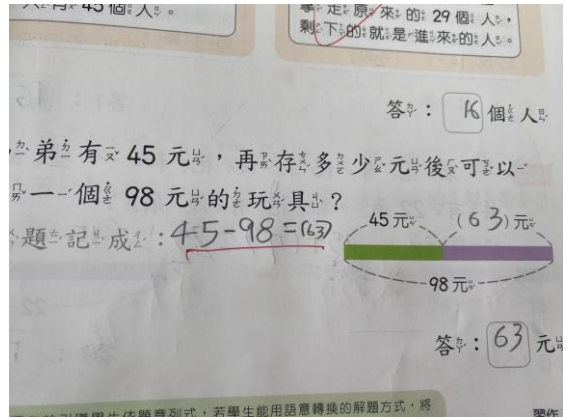 人有 45 個人。
拿走原來的 29 個人，
剩下的就是進來的人。
答：16 個人
弟弟有 45 元，再存多少元後可以
買一個 98 元的玩具？
題記成：45-98=(63)
45 元 (63) 元
98 元
答：63 元
引導學生依題意列式，若學生能用語意轉換的解題方式，將
習作